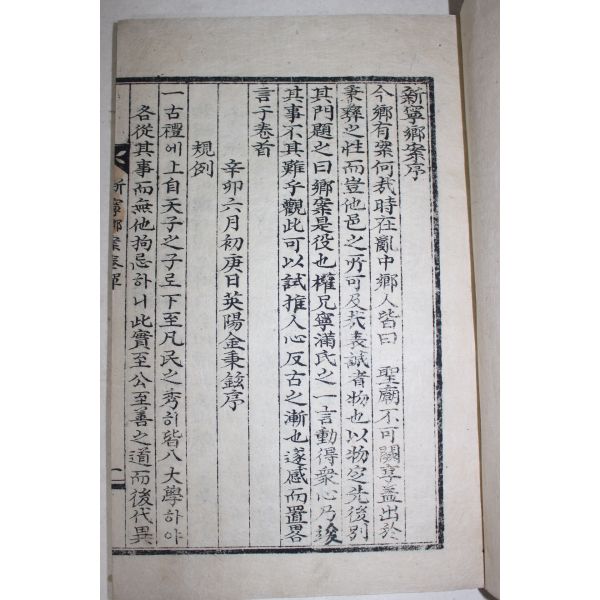 新寧鄕案序
今鄕有案何哉時在亂中鄕人皆曰 聖廟不可闕享盖出於
秉彛之性而豈他邑之所可及哉表誠者物也以物定先後別
其門題之曰鄕案是役也權兄寧滿氏之一言動得衆心乃竣
其事不其難乎觀此可以試推人心反古之漸也遂感而置畧
言于卷首
辛卯六月初庚日英陽金秉鉉序
規例
一古禮에上自天子之子로下至凡民之秀히皆入大學하야
各從其事而無他拘忌하니此實至公至善之道而後代異
新寧鄕案卷單
一